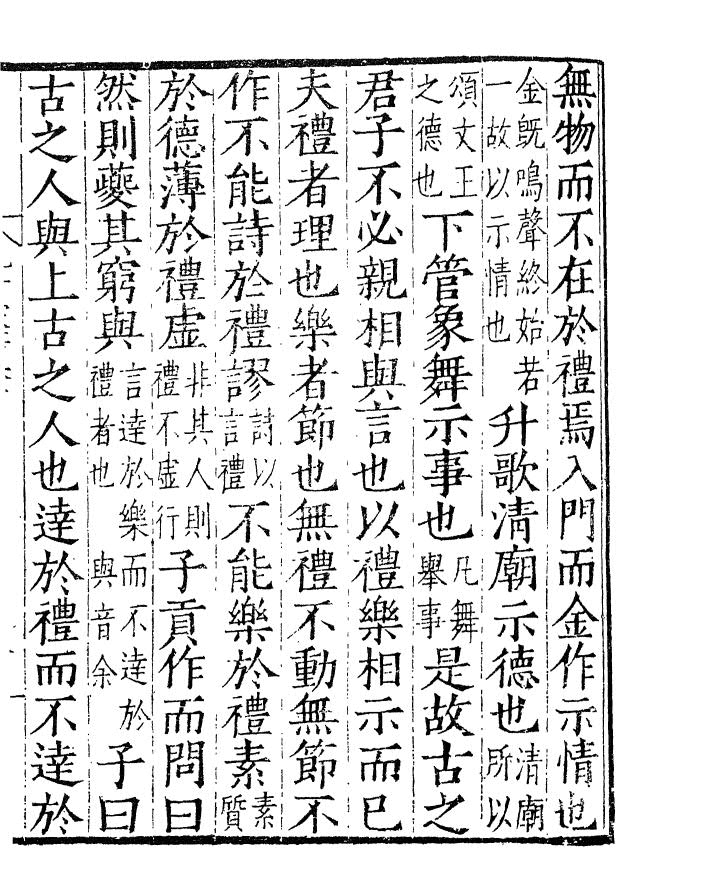 無物而不在於禮焉入門而金作示情也
金旣鳴聲終始若一故以示情也升歌清廟示德也清廟所以
頌文王之德也下管象舞示事也凡舞舉事是故古之
君子不必親相與言也以禮樂相示而已
夫禮者理也樂者節也無禮不動無節不
作不能詩於禮謬詩以言禮不能樂於禮素素質
於德薄於禮虛非其人則禮不虛行子貢作而問曰
然則夔其窮與言達於樂而不達於禮者也與音余子曰
古之人與上古之人也達於禮而不達於